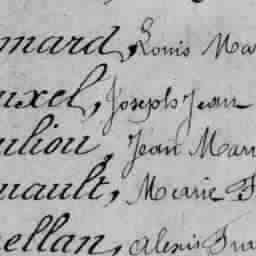 onard, Louis Mar
uxel, Joseph Jean
uliou, Jean Mari
uault, Marie F
ellan, Alexis Fra